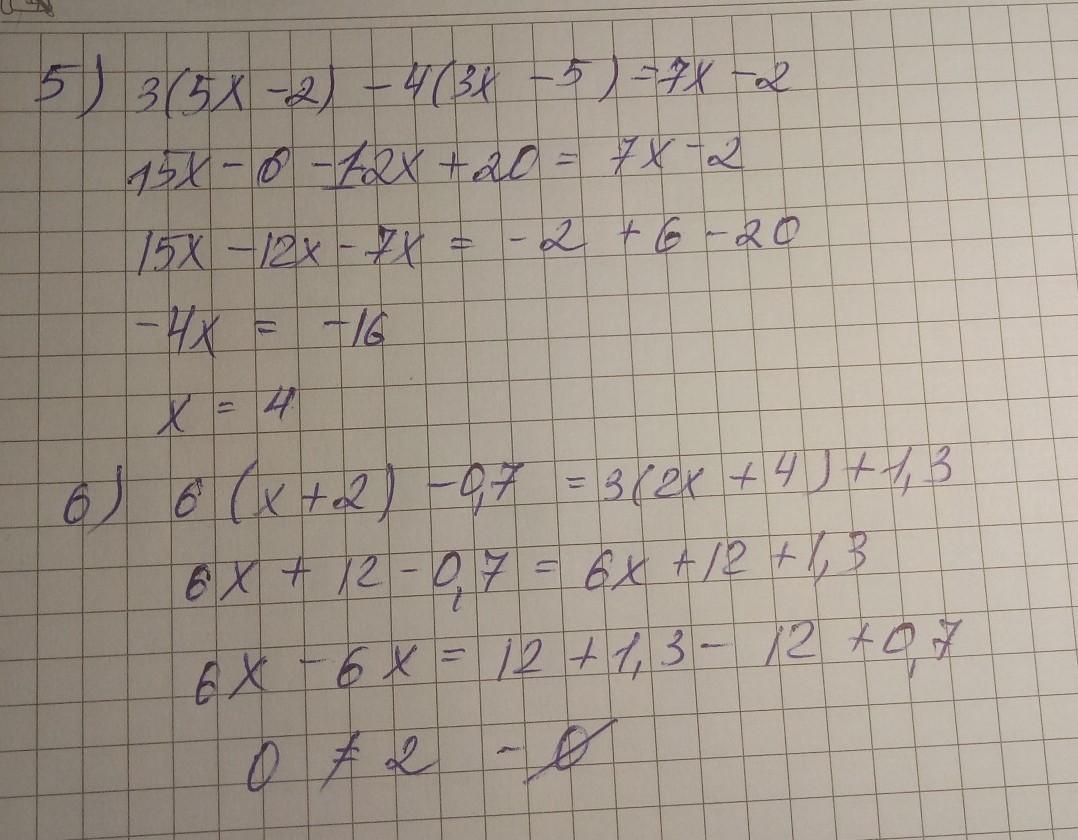 5) 3(5x - 2) - 4(3x - 5) = 7x - 2
15x - 6 - 12x + 20 = 7x - 2
15x - 12x - 7x = - 2 + 6 - 20
-4x = -16
x = 4
6) 6 (x + 2) - 0,7 = 3(2x + 4) + 1,3
6x + 12 - 0,7 = 6x + 12 + 1,3
6x - 6x = 12 + 1,3 - 12 + 0,7
0 ≠ 2 - ∅